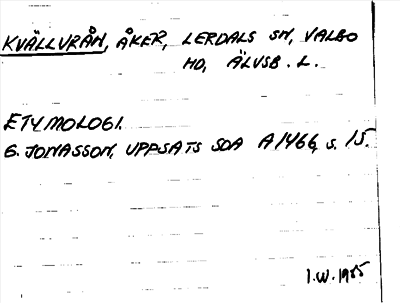 KVÄLLVRÅN, ÅKER, LERDALS SN, VALBO
HD, ÄLVSB. L.
ETYMOLOGI.
G. JONASSON, UPPSATS SOA A1466, s. 15.
I.W. 1955